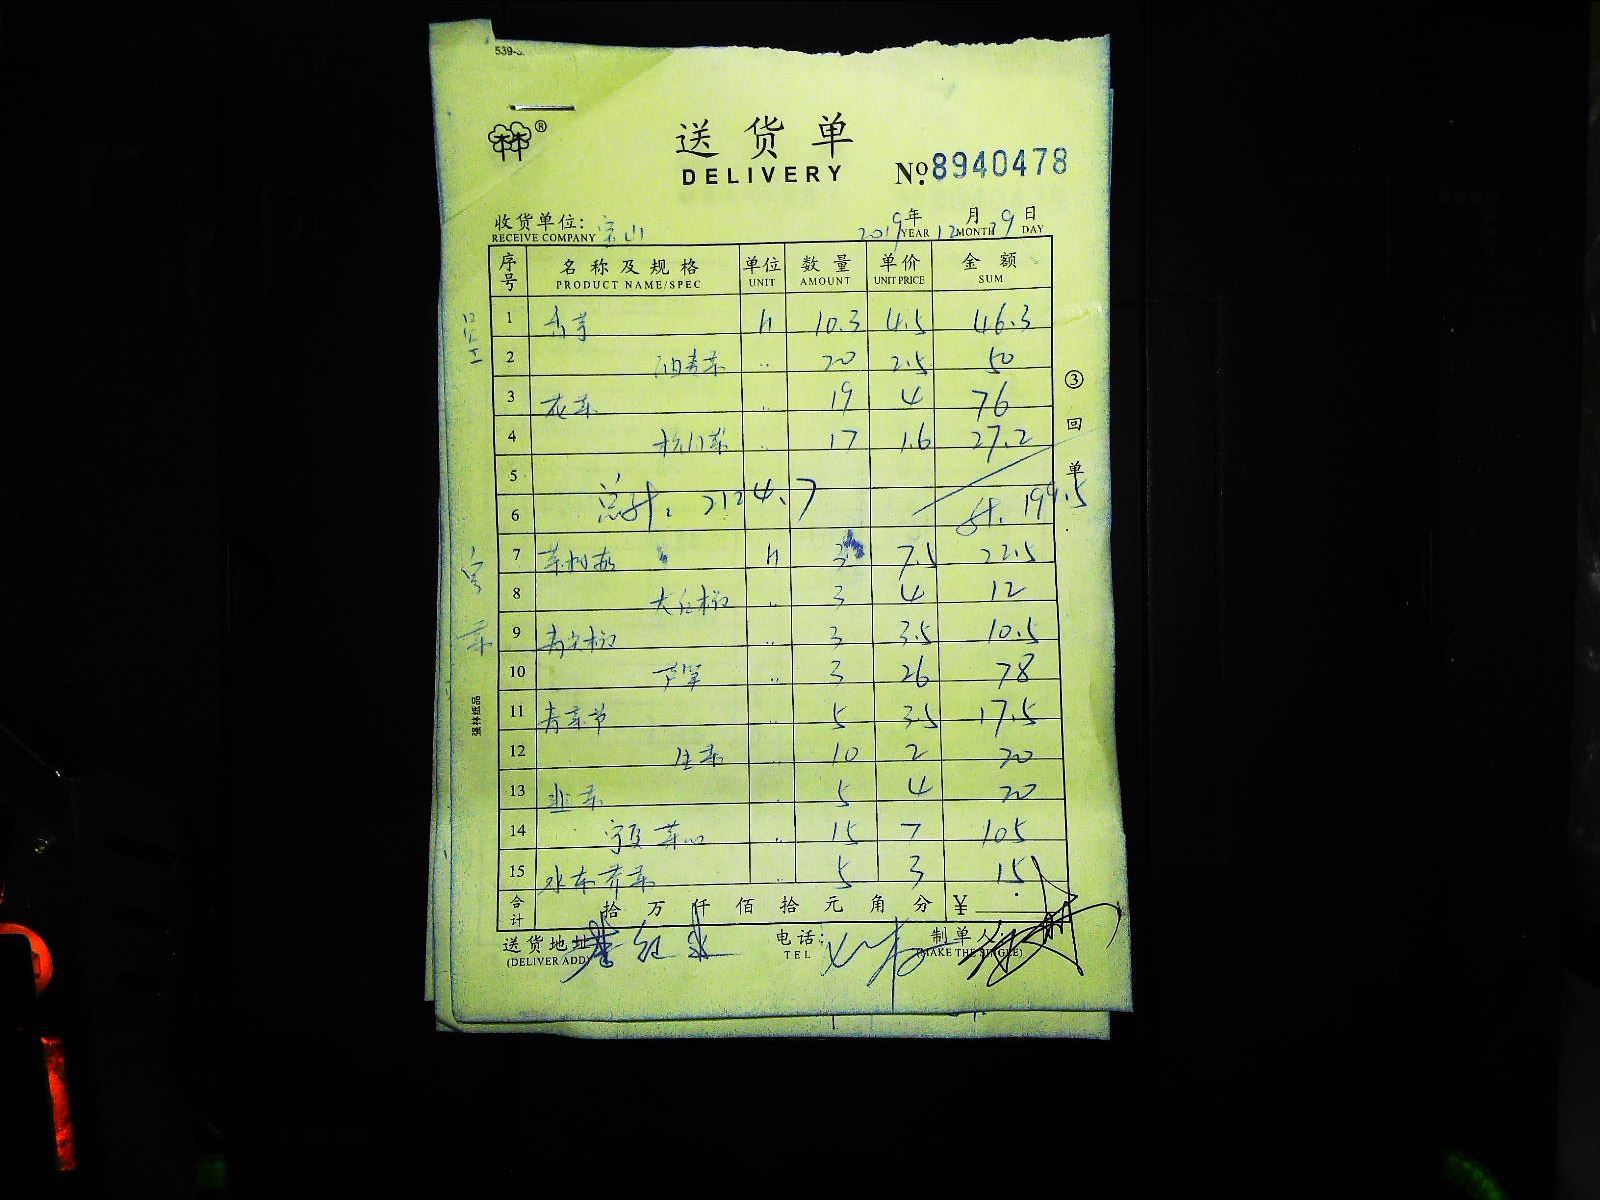 539-
®
送货单
DELIVERY
№ 8940478
收货单位: 宝山
RECEIVE COMPANY
2019年 12月 9日
YEAR MONTH DAY
序号 名称及规格 单位 数量 单价 金额
PRODUCT NAME/SPEC UNIT AMOUNT UNIT PRICE SUM
1 香芋 斤 10.3 4.5 46.3
2 油麦菜 .. 20 2.5 50
3 花菜 .. 19 4 76
4 .. 17 1.6 27.2
5
6 总计: 2124.7 计. 199.5
7 斤 3 7.5 22.5
8 大红椒 .. 3 4 12
9 青尖椒 .. 3 3.5 10.5
10 芦笋 .. 3 26 78
11 .. 5 3.5 17.5
12 生菜 .. 10 2 20
13 韭菜 .. 5 4 20
14 宁夏菜心 .. 15 7 105
15 水东芥菜 .. 5 3 15
合计 拾 万 仟 佰 拾 元 角 分 ¥
送货地址
(DELIVER ADD)
电话:
TEL
制单人:
(MAKE THE SINGLE)
③ 回单
强林纸品